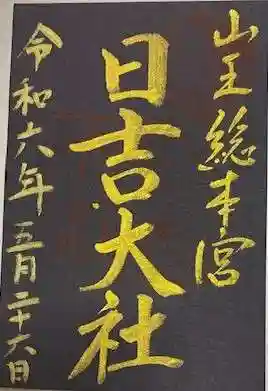 山王総本宮
日吉大社
令和六年五月二十六日